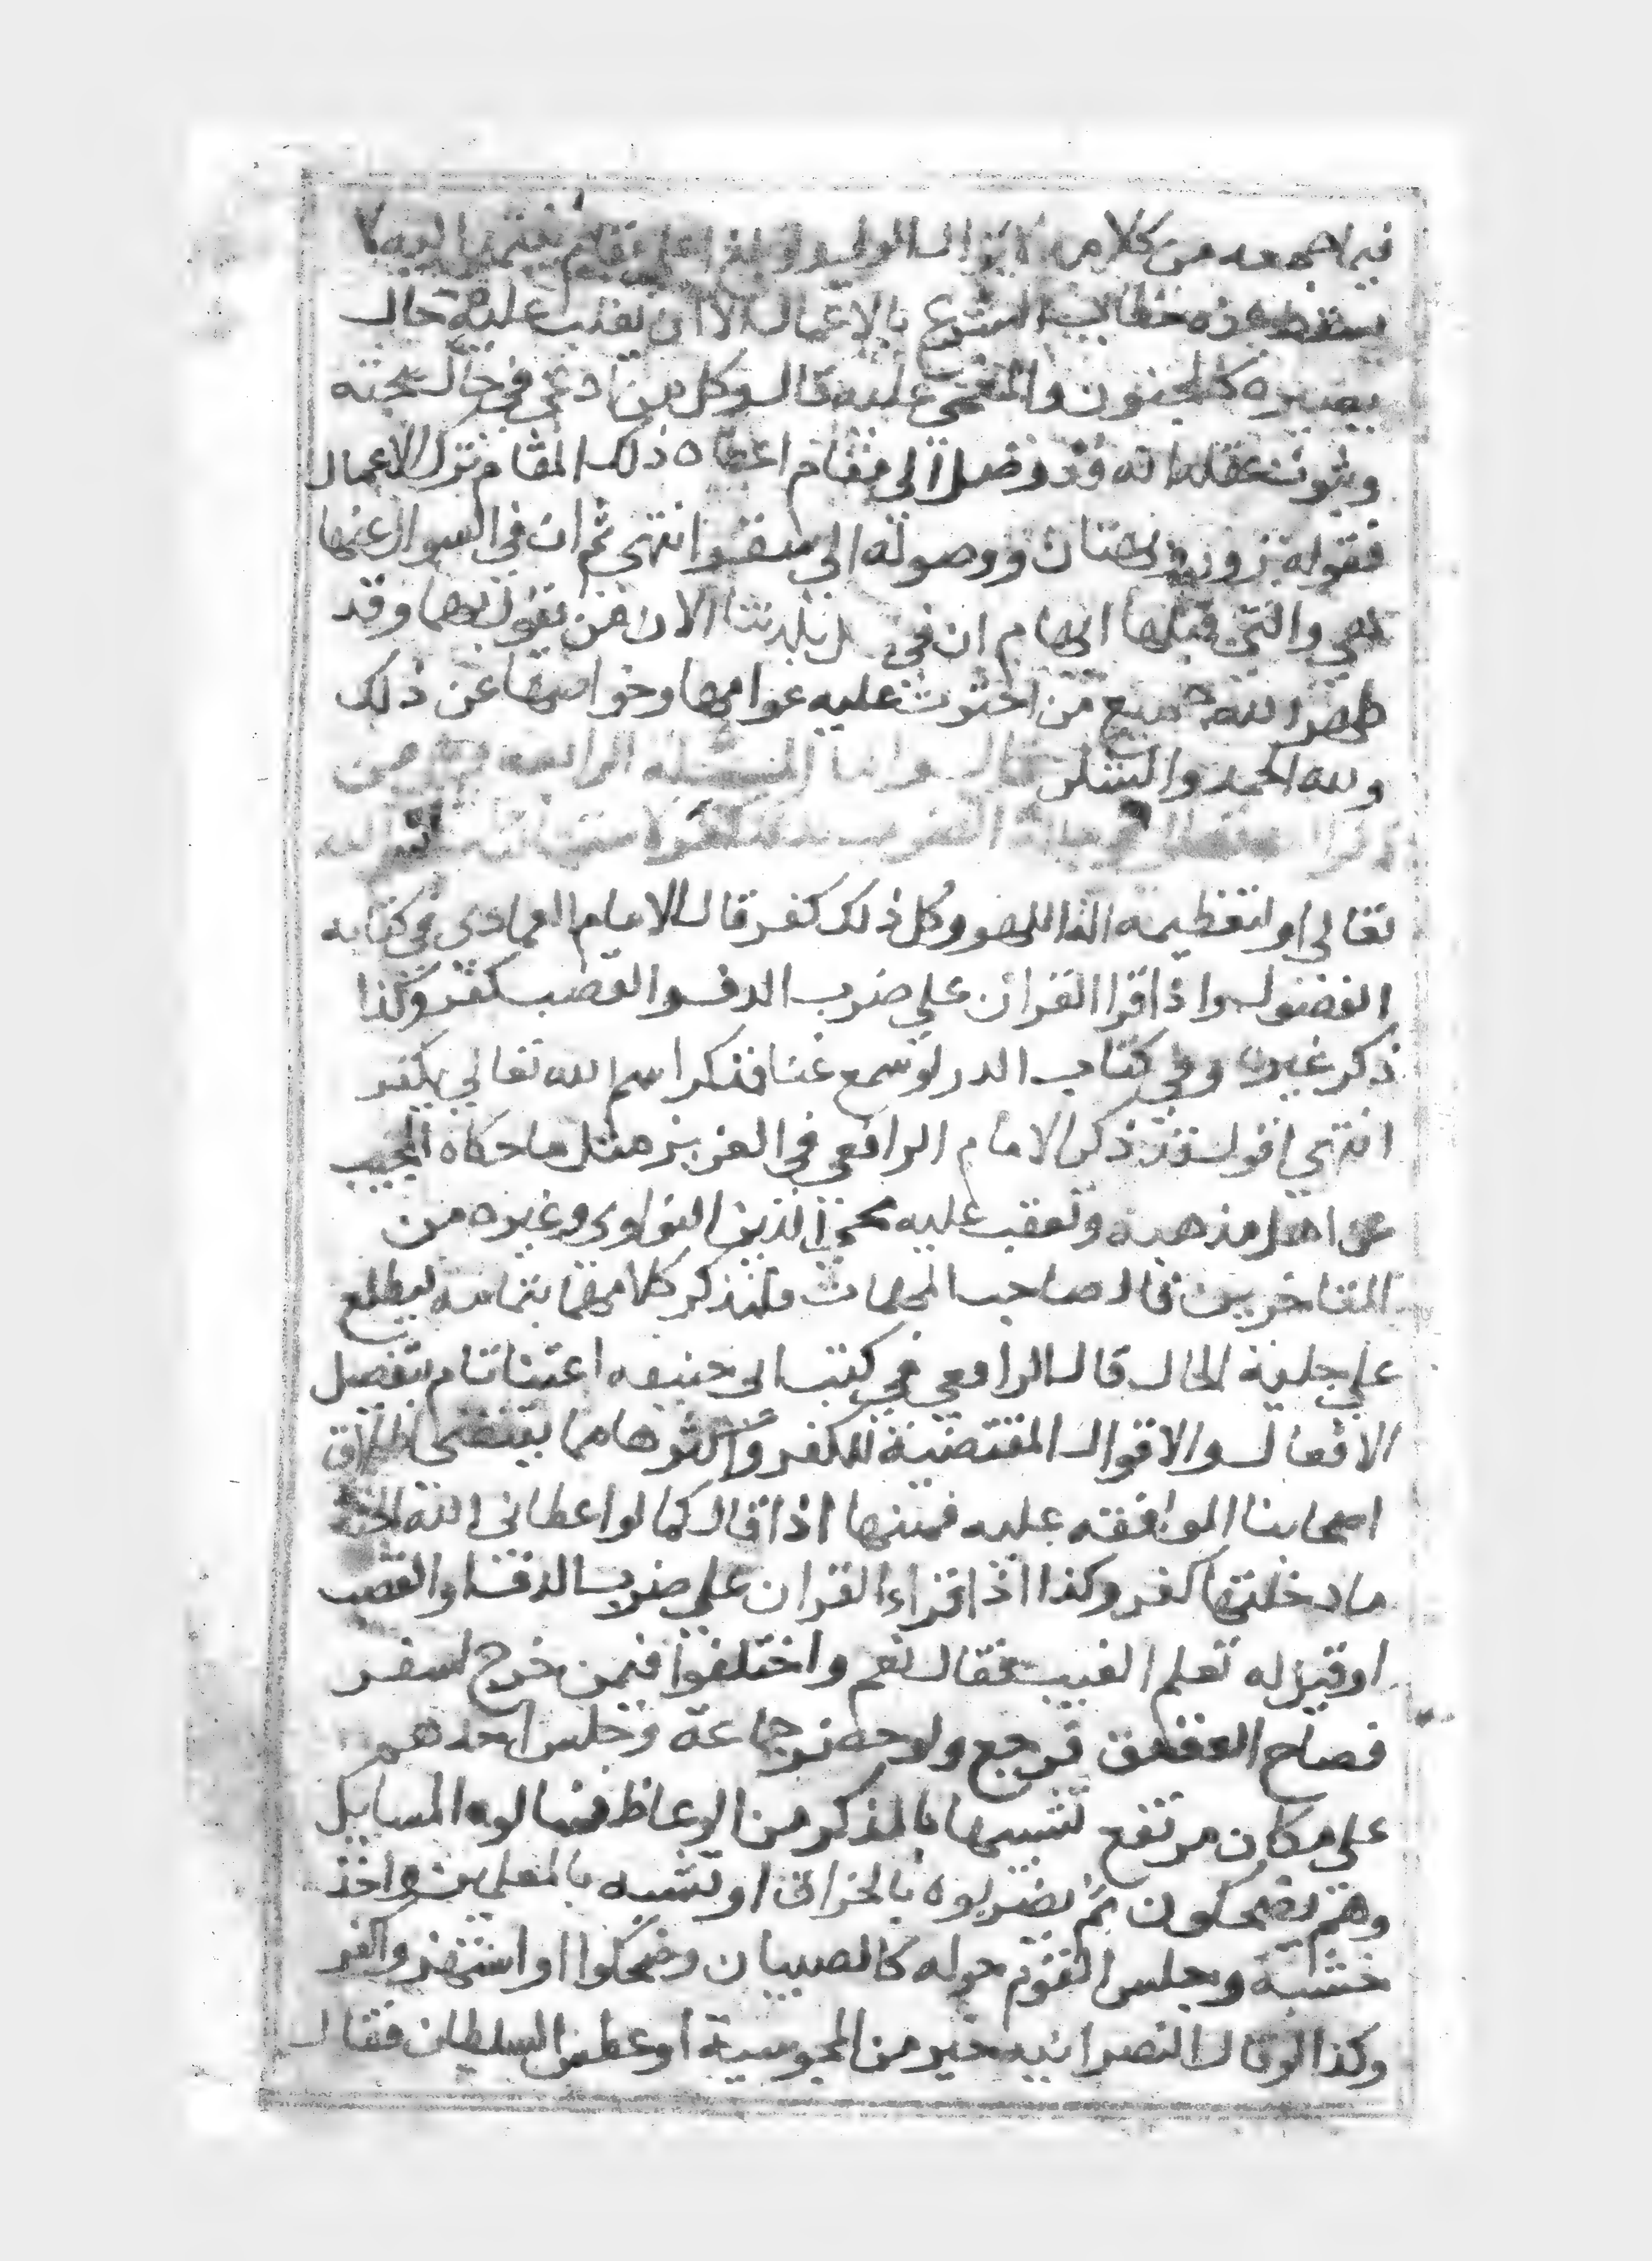 فيما جمعه من كلام لا يزال الولي ولو بلغ اعلى مقام ينتمي اليه لا
يسقط عنه خطاب الشرع بالاعمال الا ان تغلب عليه حال
يصيره كالمجنون والمغمى عليه قال وكل من ادعى في حال صحته
وثبوت عقله انه قد وصل الى مقام اعطاه ذلك المقام ترك الاعمال
فقوله زور وبهتان ووصوله الى سقر انتهى ثم ان في السوال عنها
هي والتي قبلها ايهام ان في بلدتنا الان من يقول بها وقد
طهر الله جميع من احتوت عليه عوامها وخواصها عن ذلك
ولله الحمد والشكر قال واما المسئلة الرابعة من
ذكر الضرب يكفر لاستهانته لذكر الله
تعالى او لتعظيمه اللهو وكل ذلك كفر قال الامام العمادي في كتابه
الفصول واذا قرا القران على ضرب الدف والقصب كفر وكذا
ذكر غيره وفي كتاب الدرر لو سمع غنا فذكر اسم الله تعالى يكفر
انتهى اقول قد ذكر الامام الرافعي في العزيز مثل ما حكاه المجيب
عن اهل مذهبه وتعقب عليه محيي الدين النواوي وغيره من
المتاخرين قال صاحب المهمات ولنذكر كلامهما بتمامه ليطلع
على جلية الحال قال الرافعي في كتب ابي حنيفه اعتنا تام بتفصيل
الافعال والاقوال المقتضية للكفر واكثرها مما يقتضي اطلاق
اصحابنا الموافقه عليه فمنها اذا قال كما لو اعطاني الله الجنة
ما دخلتها كفر وكذا اذا قراء القران على ضرب الدف او القصب
او قيل له تعلم الغيب فقال نعم واختلفوا فيمن خرج لسفر
فصاح العقعق فرجع ولو جماعة وجلس احدهم
على مكان مرتفع تشبيها بالمذكر من الوعاظ فسالوه المسايل
وهم يضحكون ثم يضربوه بالخراق او تشبه بالمعلمين واخذ
خشبة وجلس القوم حوله كالصبيان وضحكوا او استهزوا كفر
وكذا لو قال النصرانيه خير من المجوسية او عطس السلطان فقال